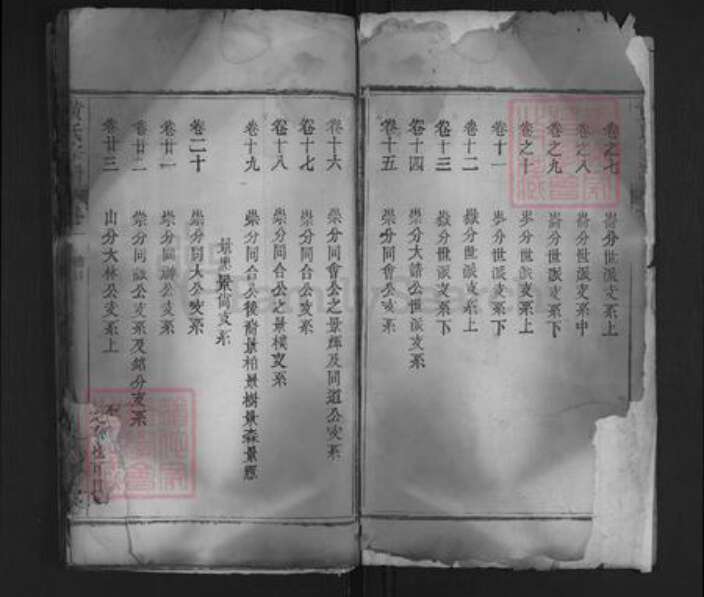 卷之七 嵛分世派支系上
卷之八 嵛分世派支系中
卷之九 嵛分世派支系下
卷之十 步分世派支系上
卷十一 步分世派支系下
卷十二 嶽分世派支系上
卷十三 嶽分世派支系下
卷十四 崇分大諸公世派支系
卷十五 崇分同會公支系
卷十六 崇分同會公之景輝及同道公支系
卷十七 崇分同合公支系
卷十八 崇分同合公之景樸支系
卷十九 崇分同合公後裔景柏景樹景森景應
景尚支系
卷二十 崇分同人公支系
卷廿一 崇分同公支系
卷廿二 崇分同公支系及銘分支系
卷廿三 山分大林公支系上